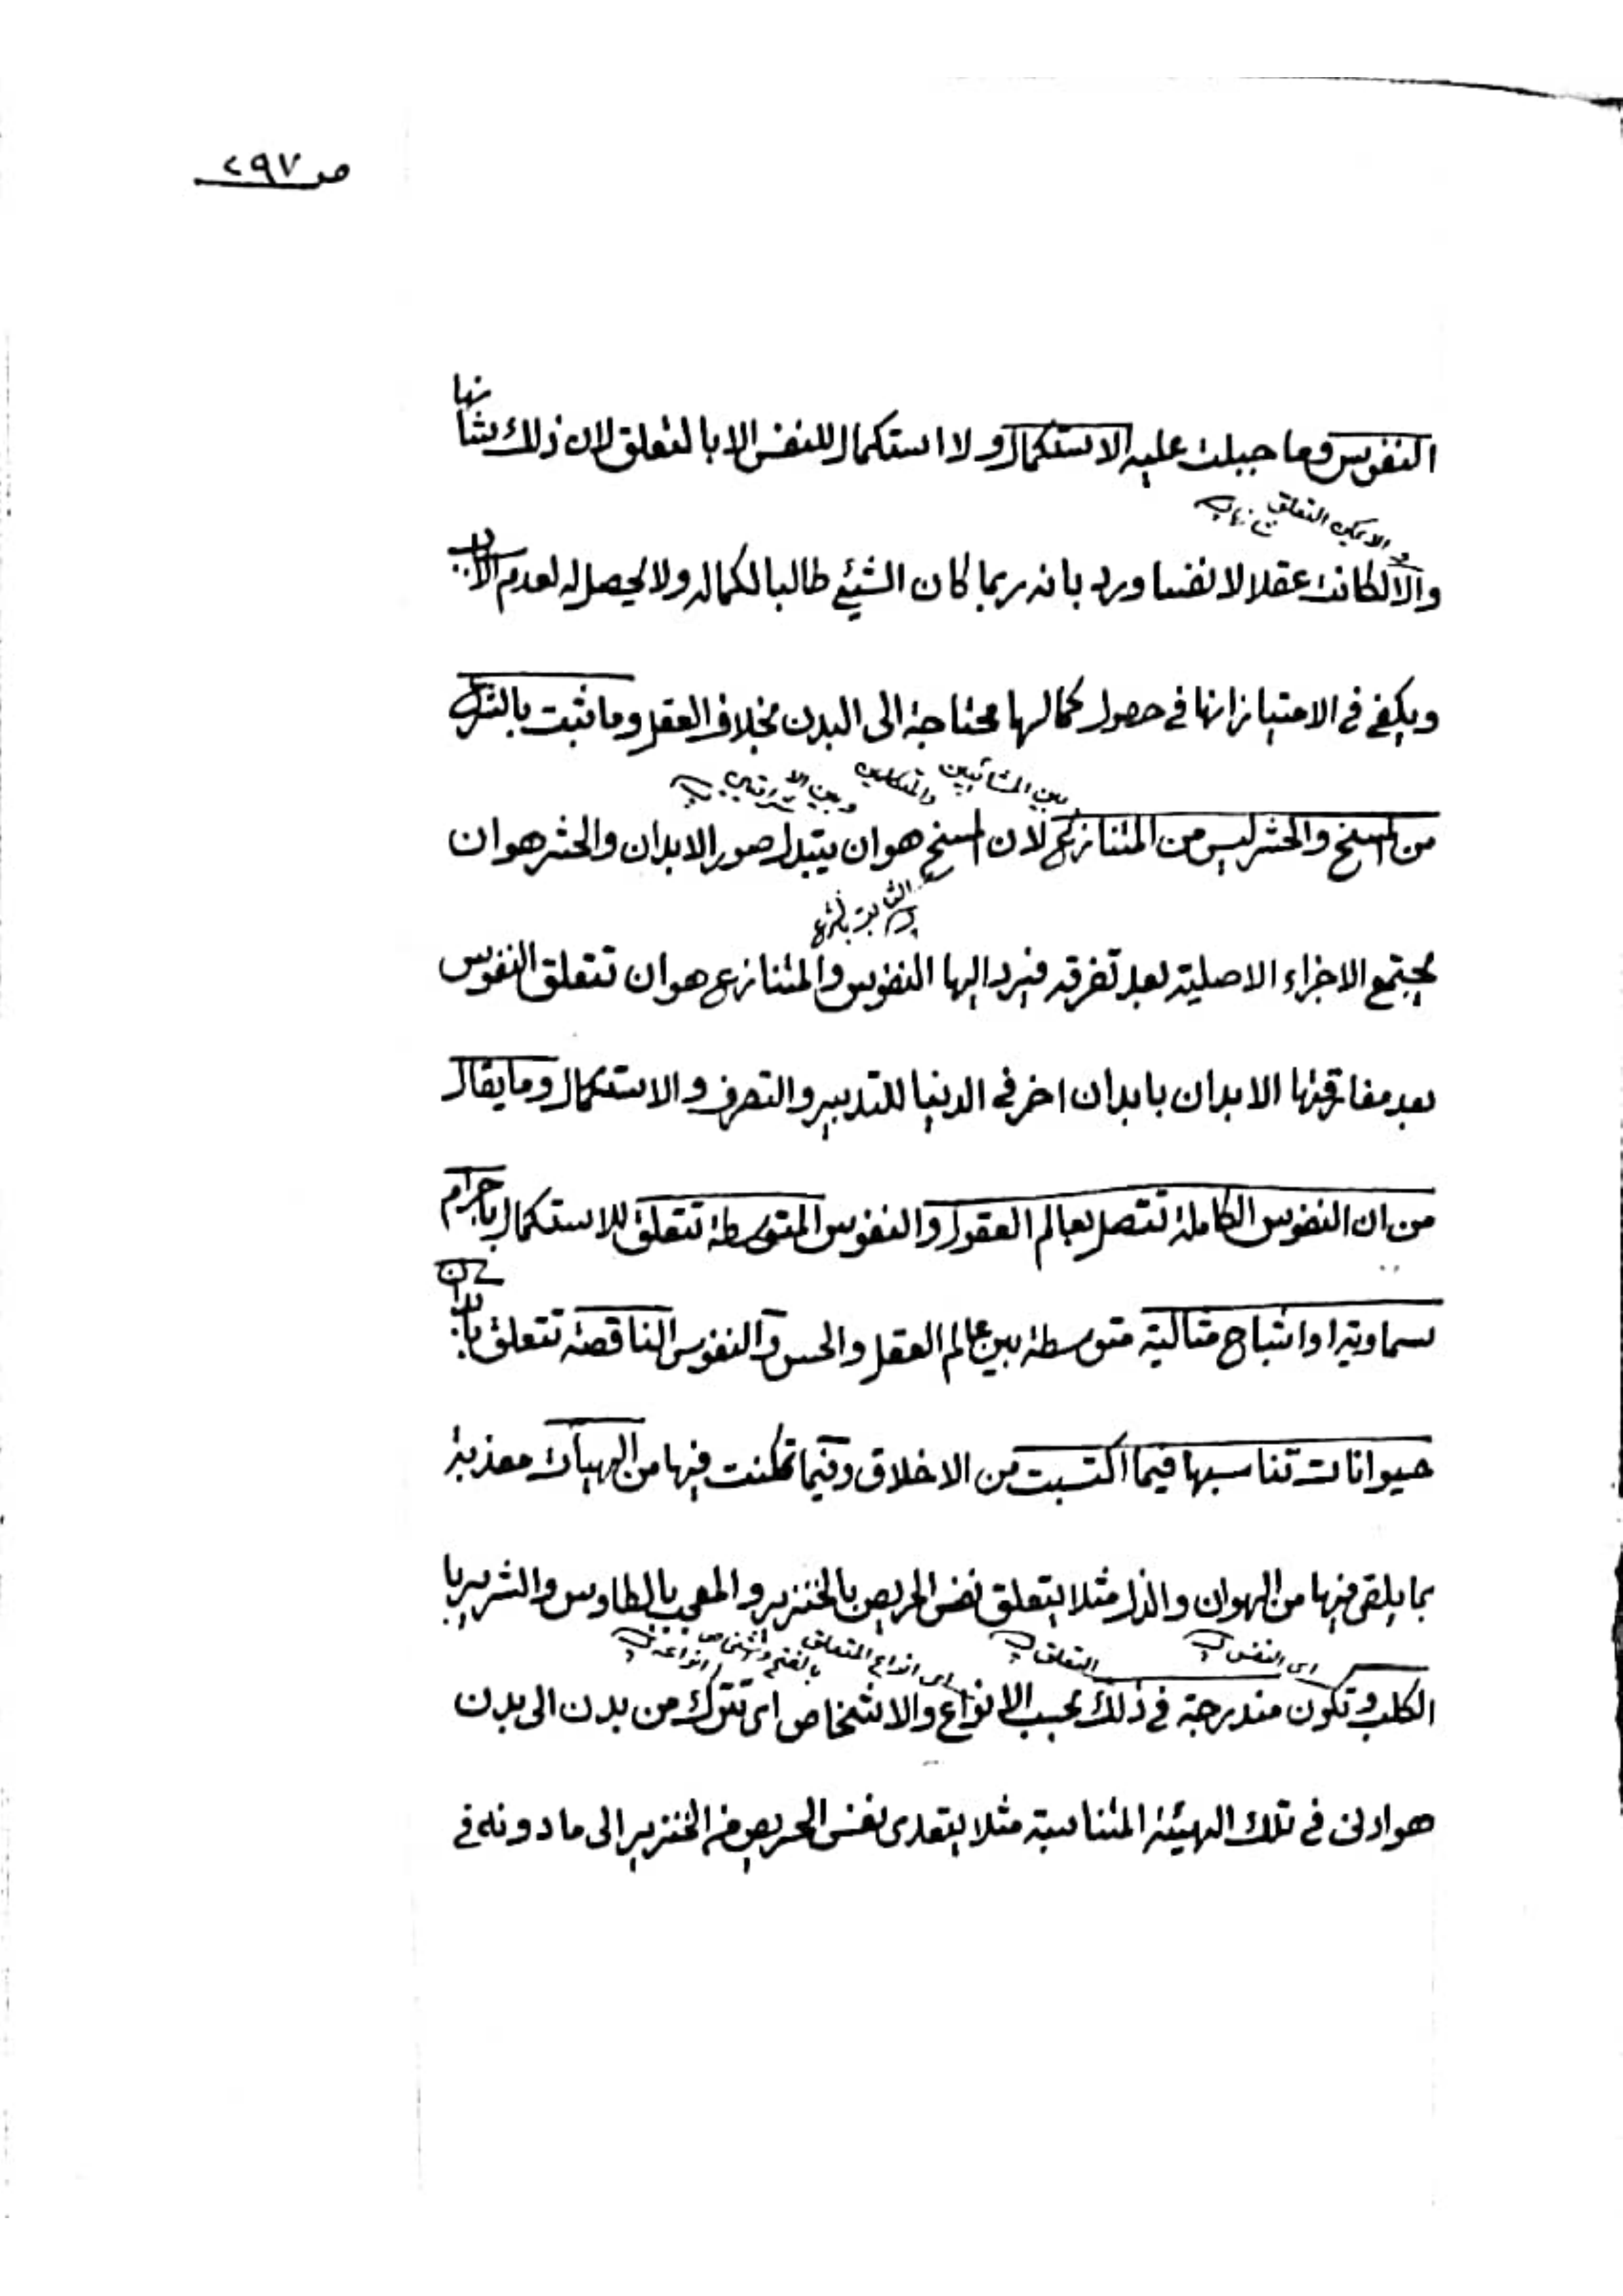 ص ٢٩٧
النفوس وما جبلت عليه الاستكمال ولا استكمال للنفس الا بالتعلق لان ذلك شانها
والا يكن التعلق
والا لكانت عقلا لا نفسا ورد بانه ربما كان الشيئ طالبا لكماله ولا يحصل له لعدم الاسباب
ويكفي في الامتياز انها في حصول كمالها محتاجة الى البدن بخلاف العقل وما ثبت بالشرع
بين المشائيين والمتكلمين وبين الاشراقيين
من المسخ والحشر ليس من المتنازع لان المسخ هو ان يتبدل صور الابدان والحشر هو ان
الثابت بالشرع
يجتمع الاجزاء الاصلية بعد تفرقه فيرد اليها النفوس والمتنازع هو ان تتعلق النفوس
بعد مفارقتها الابدان بابدان اخر في الدنيا للتدبير والتصرف والاستكمال وما يقال
من ان النفوس الكاملة تتصل بعالم العقول والنفوس المتوسطة تتعلق للاستكمال باجرام
سماوية او اشباح مثالية متوسطة بين عالم العقل والحس والنفوس الناقصة تتعلق بابدان
حيوانات تناسبها فيما اكتسبت من الاخلاق وفيما تمكنت فيها من الهيات معذبة
بما يلقى فيها من الهوان والذل مثلا يتعلق نفس الحريص بالخنزير والمعجب بالطاوس والشرير با
اى النفس
التعلق
اى انواع المتعلق بالفتح واشخاص انواعه
الكلب وتكون مندرجة في ذلك بحسب الانواع والاشخاص اى تترك من بدن الى بدن
هو ادنى في تلك الهيئة المتناسبة مثلا يتعدى نفس الحريص من الخنزير الى ما دونه في